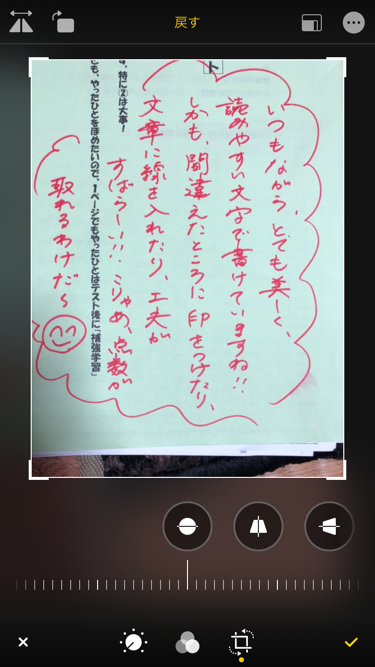 戻す
ト
いつもながら、とても美しく、
読めやすい文字で書けていますね!!
しかも、間違えたところにFPをつけたり、
文章に線を入れたり、工夫が
すばらしい!!こりゃめ、点数が
取れるわけだ〜
す。特に②は大事!
とも、やったひとをほめたいので、1ページでもやったひとはテスト後に「補強学習」